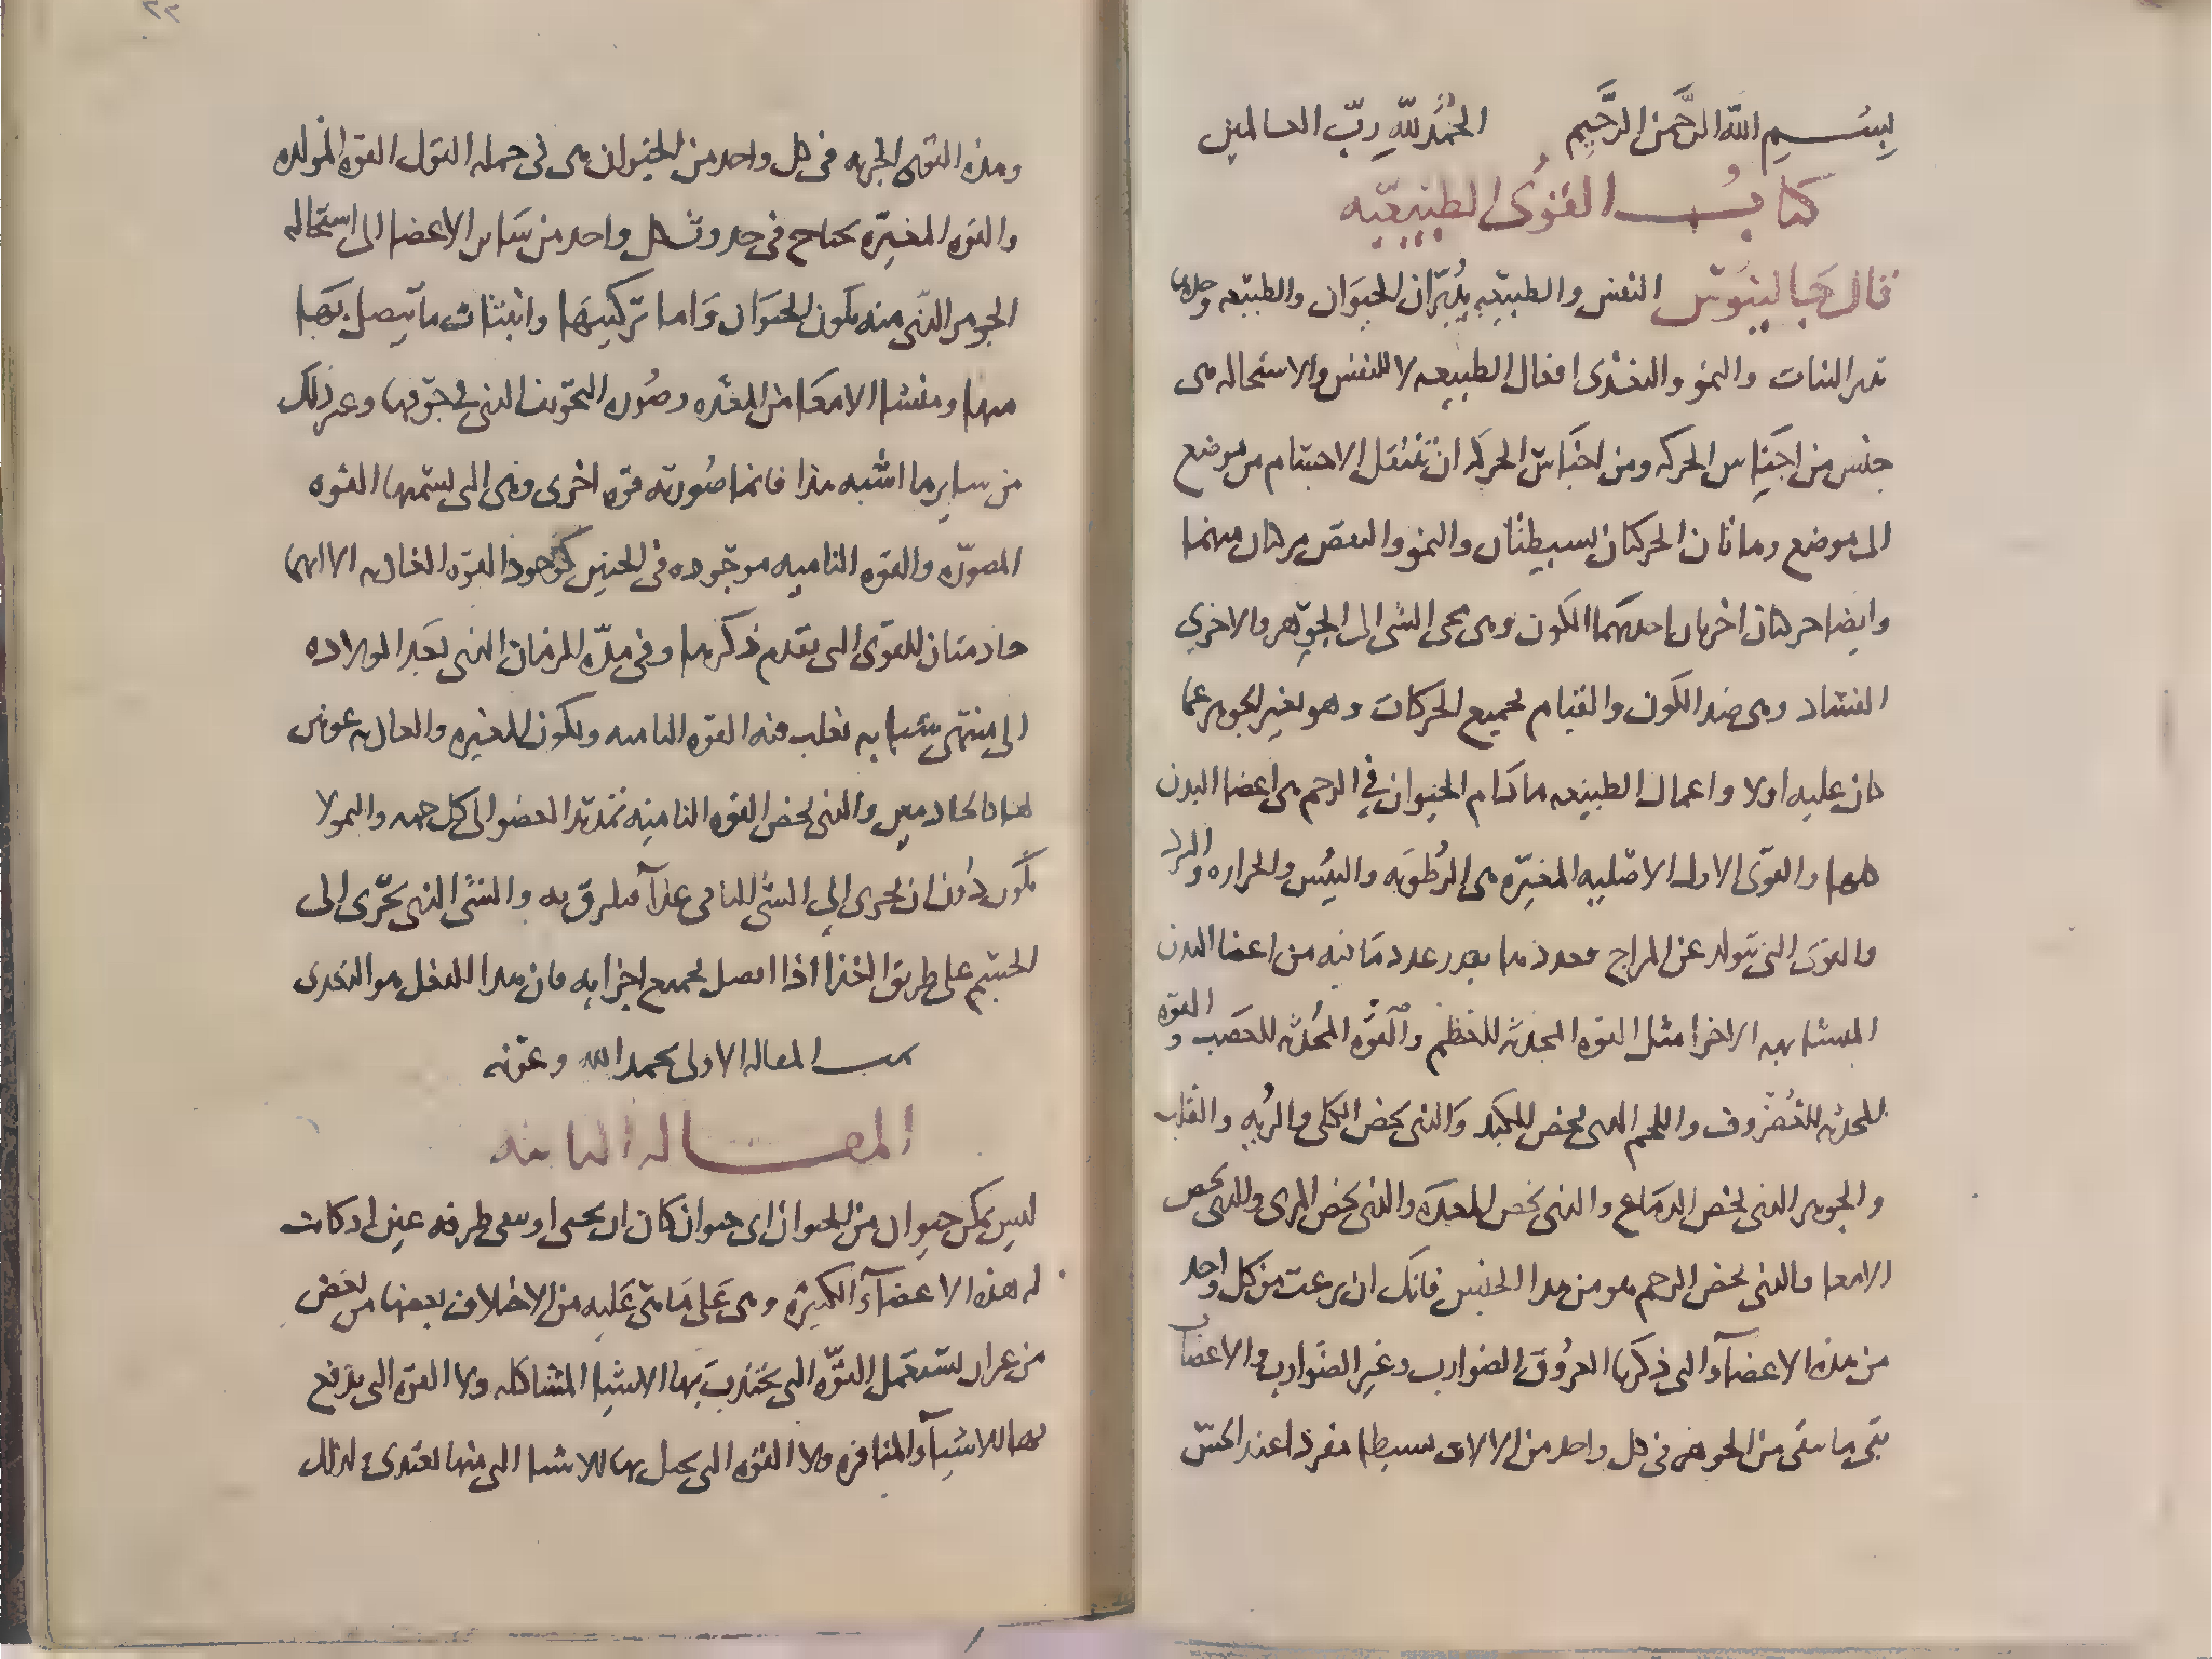 بسم الله الرحمن الرحيم الحمد لله رب العالمين
كتاب القوى الطبيعيه
قال جالينوس النفس والطبيعه يدبران الحيوان والطبيعه وحدها
تدبر النبات والنمو والتغذى افعال الطبيعه لا للنفس والاستحاله هى
جنس من اجناس الحركه ومن اجناس الحركه ان تنتقل الاجسام من موضع
الى موضع وهاتان الحركتان بسيطتان والنمو والنقص مركبان منهما
وايضا حركتان اخريان احدهما الكون وهى مجى الشى الى الجوهر والاخرى
الفساد وهى ضد الكون والقيام لجميع الحركات وهو تغير الجوهر عما
كان عليه اولا واعمال الطبيعه ما دام الحيوان فى الرحم هى اعضا البدن
كلها والقوى الاول الاصليه المغيره هى الرطوبه واليبس والحراره والبرد
والقوى التى تتولد عن المزاج فعددها بقدر عدد ما فيه من اعضا البدن
المتشابهه الاجزا مثل القوه المحدثه للعظم والقوه المحدثه للعصب والقوه
المحدثه للغضروف واللحم الذى يخص الكبد والذى يخص الكلى والريه والقلب
والجوهر الذى يخص الدماغ والذى يخص المعده والذى يخص المرى والذى يخص
الامعا والذى يخص الرحم هو من هذا الجنس فانك ان نزعت من كل واحد
من هذه الاعضآء التى ذكرنا العروق الضوارب وغير الضوارب والاعصاب
بقى ما بقى من الجوهر فى كل واحد من الالات بسيطا مفردا عند الحس
وهذه القوى الجزيه فى كل واحد من الحيوان هى فى جمله القول القوه المولده
والقوه المغيره يحتاج فى حدوث كل واحد من ساير الاعضا الى استحاله
الجوهر الذى منه يكون الحيوان واما تركيبها وانبثاث ما يتصل بها
منها ومنشا الامعا من المعده وصوره التجويف الذى فى جوفها وغير ذلك
من ساير ما اشبه هذا فانما صورته قوه اخرى وهى التى نسميها القوه
المصوره والقوه الناميه موجوده فى الجنين كوجود القوه الغاذيه الا انهما
خادمتان للقوى التى تقدم ذكرها وفى مده الزمان الذى بعد الولاده
الى منتهى شبابه تغلب فيه القوه الناميه ويكون المغيره والغاذيه عونين
لها كالخادمين والذى يخص القوه الناميه تمديد العضو الى كل جهه والنمو لا
يكون دون ان يجرى الى الشى النامى غذآ فيلزق به والشى الذى يجرى الى
الجسم على طريق الغذا اذا اتصل بجميع اجزايه فان هذا الفعل هو التغذى
تمت المقاله الاولى بحمد الله وعونه
المقاله الثانيه
ليس يمكن حيوان من الحيوان اى حيوان كان ان يحيى او يبقى طرفه عين اذ كانت
له هذه الاعضآء الكثيره وهى على ما هى عليه من الاختلاف بعضها من بعض
من غير ان يستعمل القوه التى يجتذب بها الاشيا المشاكله ولا القوه التى يدفع
بها الاشيآء المنافره ولا القوه التى يحيل بها الاشيا التى منها يغتذى ولذلك